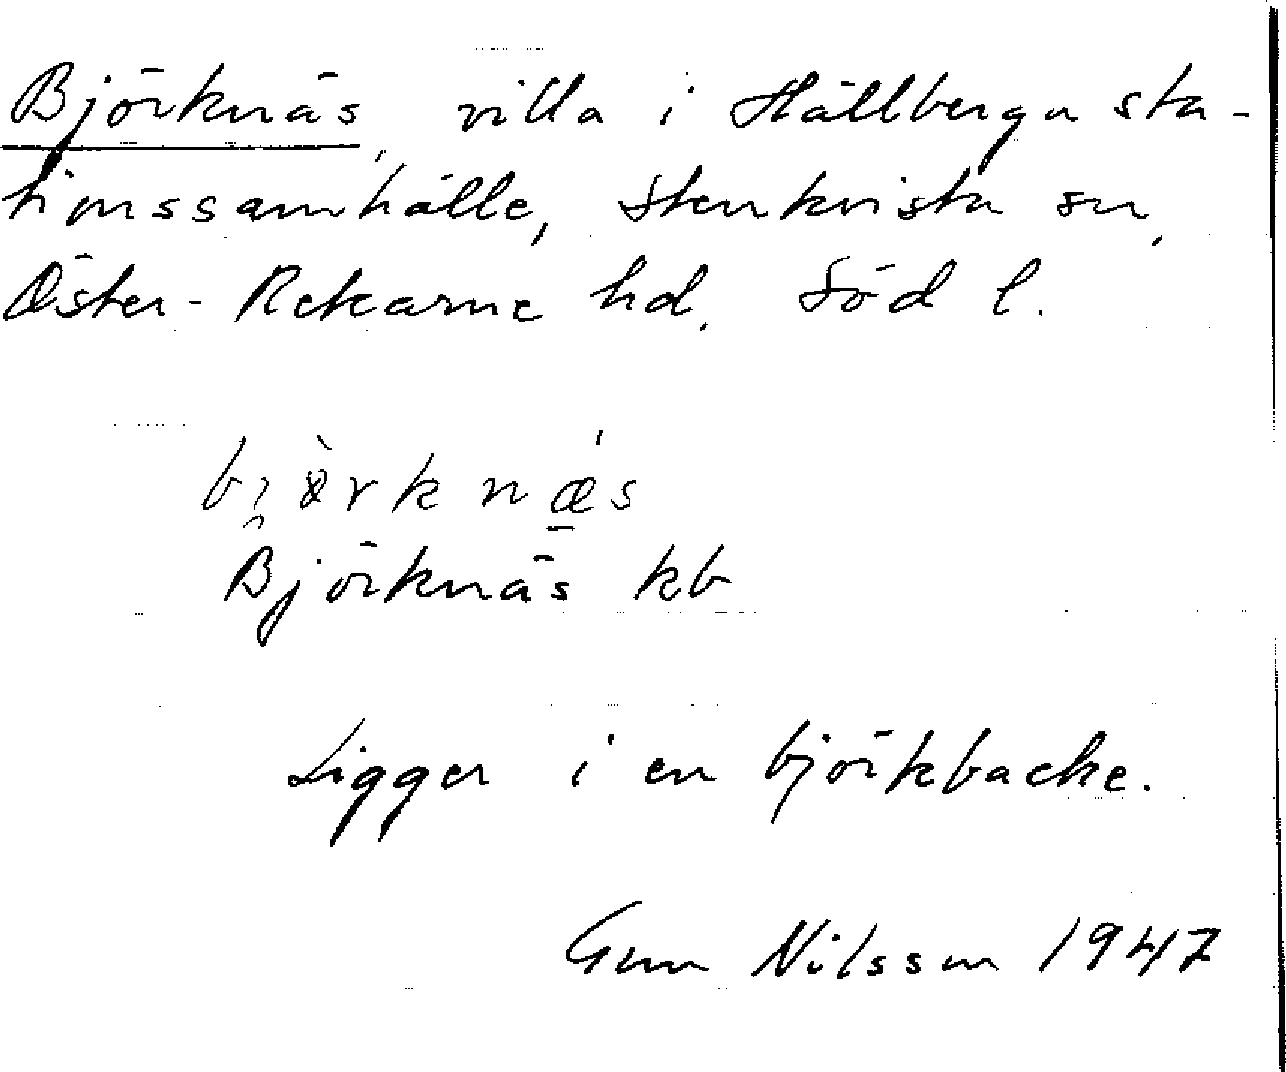 Björknäs, villa i Hällberga sta-
tionssamhälle, Stenkvista sn,
Öster-Rekarne hd. Söd l.
bi̯ö̀rknǽ̲s
Björknäs kb
Ligger i en björkbacke.
Gun Nilsson 1947